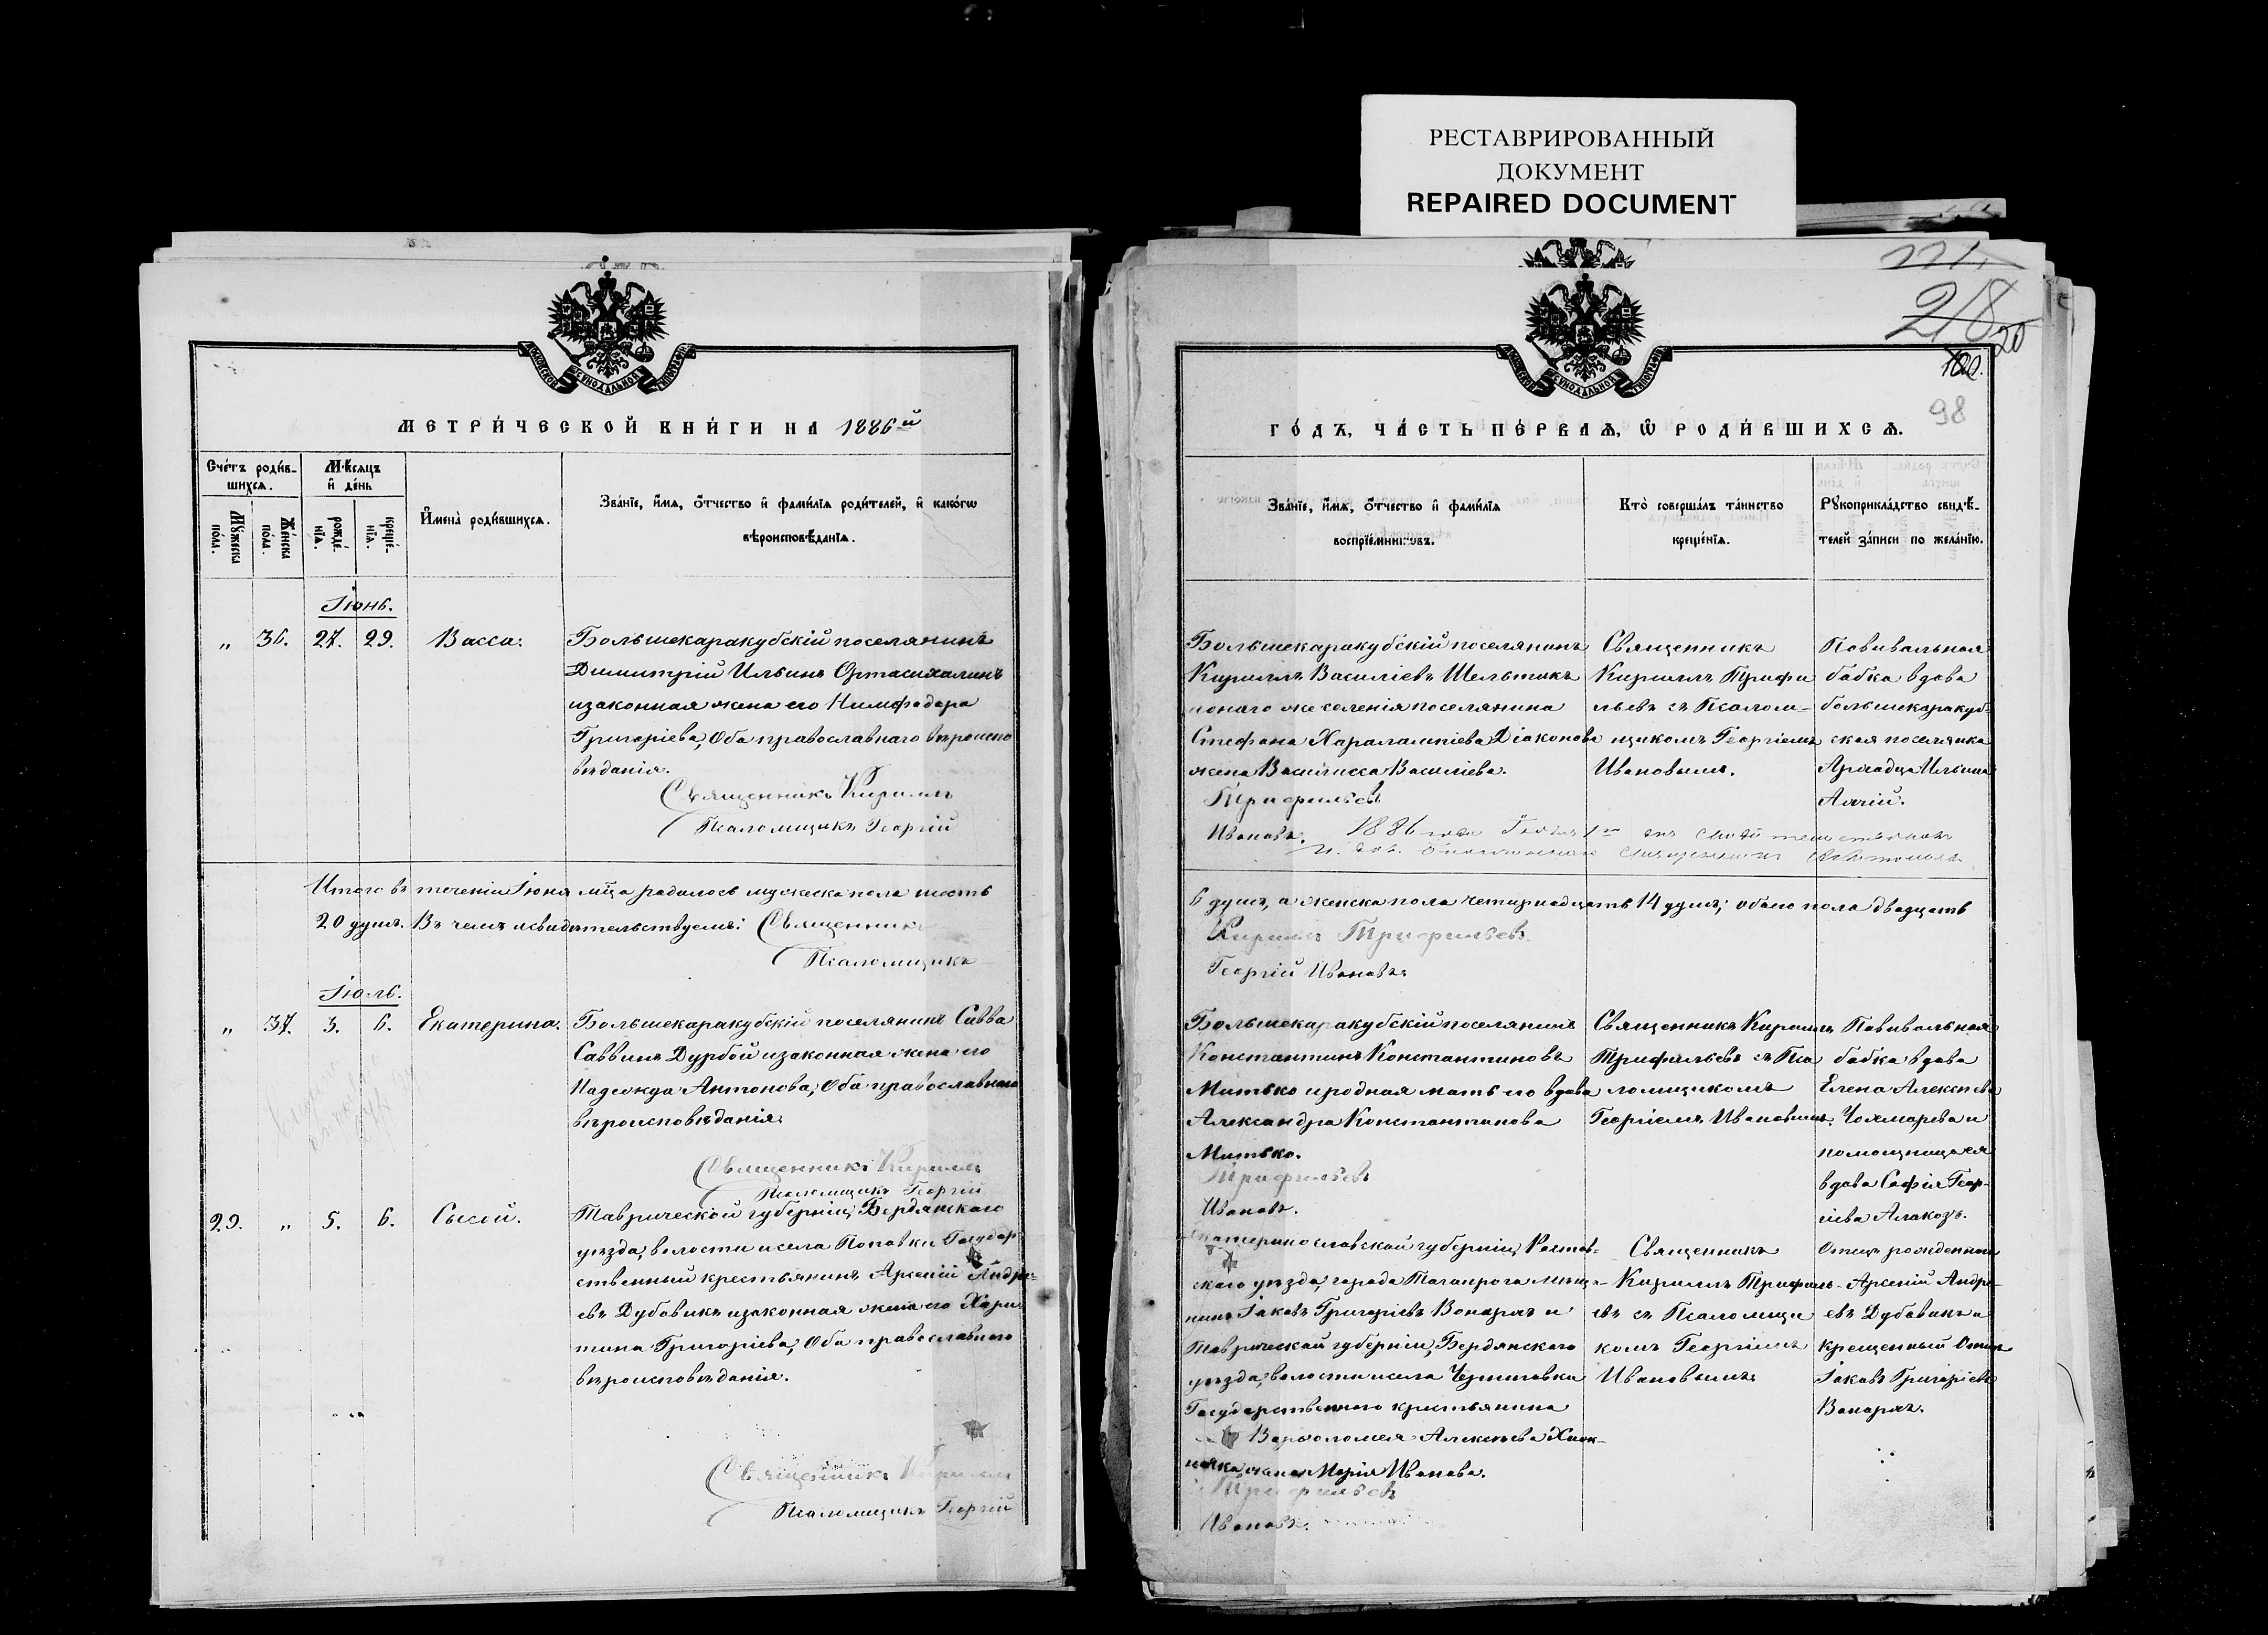 РЕСТАВРИРОВАННЫЙ
ДОКУМЕНТ
REPAIRED DOCUMENT
МОСКОВСКОЙ СѴНОДАЛЬНОЙ ТИПОГРАФІИ
МЕТРИ́ЧЕСКОЙ КНИ́ГИ НА 1886й
Сче́тъ роди́в-
шихсѧ.
Мѣ́сѧцъ
и҆ де́нь
Мꙋ́жеска
по́ла.
Же́нска
по́ла.
рожде́-
нїѧ.
креще́-
нїѧ.
И҆мена̀ роди́вшихсѧ.
Зва́нїе, и҆́мѧ, ѻ҆́тчество и҆ фами́лїѧ роди́телей, и҆ како́гѡ
вѣроисповѣ́данїѧ.
Іюнь.
„ 36. 27. 29. Васса.
Большекаракубскій поселянинъ
Димитрій Ильинъ Ортасихалинъ
изаконная жена его Нимфадора
Григоріева, Оба православнаго вѣроиспо
вѣданія.
Священникъ Кириллъ
Псаломщикъ Георгій
Итого въ теченіи Іюня мца радилось мужеска пола шесть
20 душъ. Въ чемъ исвидѣтельствуемъ: Священникъ
Псаломщикъ
Іюль.
„ 37. 3. 6. Екатерина.
Большекаракубскій поселянинъ Савва
Саввинъ Дурбой изаконная жена его
Надежда Антонова, Оба православнаго
вѣроисповѣданія.
Священникъ Кириллъ
Псаломщикъ Георгій
29. „ 5. 6. Сысой.
Таврической губерніи, Бердянскаго
уѣзда, волости исела Поповки Государ
ственный крестьянинъ Арсеній Андре-
евъ Дубовикъ изаконная жена его Хари
тина Григоріева, Оба православнаго
вѣроисповѣданія.
Священникъ Кириллъ
Псаломщикъ Георгій
218
20
98
МОСКОВСКОЙ СѴНОДАЛЬНОЙ ТИПОГРАФІИ
ГО́ДЪ, ЧА́СТЬ ПЕ́РВАѦ, Ѡ҆ РОДИ́ВШИХСѦ.
Зва́нїе, и҆́мѧ, ѻ҆́тчество и҆ фами́лїѧ
воспрїе́мниковъ.
Кто̀ соверша́лъ та́инство
креще́нїѧ.
Рꙋкоприкла́дство свидѣ́-
телей за́писи по жела́нїю.
Большекаракубскій поселянинъ
Кириллъ Василіевъ Шельтикъ
ионаго же селенія поселянина
Стефана Харалампіева Діаконова
жена Василисса Василіева.
Трифильевъ
Ивановъ.
Священникъ
Кириллъ Трифи
льевъ съ Псалом-
щикомъ Георгіемъ
Ивановымъ.
Повивальная
бабка вдова
большекаракуб-
ская поселянка
Ильина
1886 года
6 душъ, а женска пола четырнадцать 14 душъ; обоего пола двадцать
Кириллъ Трифильевъ.
Георгій Ивановъ.
Большекаракубскій поселянинъ
Константинъ Константиновъ
Митько иродная мать его вдова
Александра Константинова
Митько.
Трифильевъ
Ивановъ.
Священникъ Кириллъ
Трифильевъ съ Пса
ломщикомъ
Георгіемъ Ивановымъ.
Повивальная
бабка вдова
Елена Алексѣева
Чохмарева и
помощница ея
вдова Софія Геор-
гіева Алакозъ.
Екатеринославской губерніи, Ростов-
скаго уѣзда, города Таганрога мѣща-
нинъ Іаковъ Григоріевъ Вонархъ и
Таврической губерніи, Бердянскаго
уѣзда, волости исела Черниговки
Государственнаго крестьянина
Варѳоломея Алексѣева
жена Марія Иванова.
Трифильевъ
Ивановъ.
Священникъ
Кириллъ Трифиль-
евъ съ Псаломщи
комъ Георгіемъ
Ивановымъ.
Отецъ рожденнаго
Арсеній Андре-
евъ Дубовикъ и
крещенный Отецъ
Іаковъ Григоріевъ
Вонархъ.